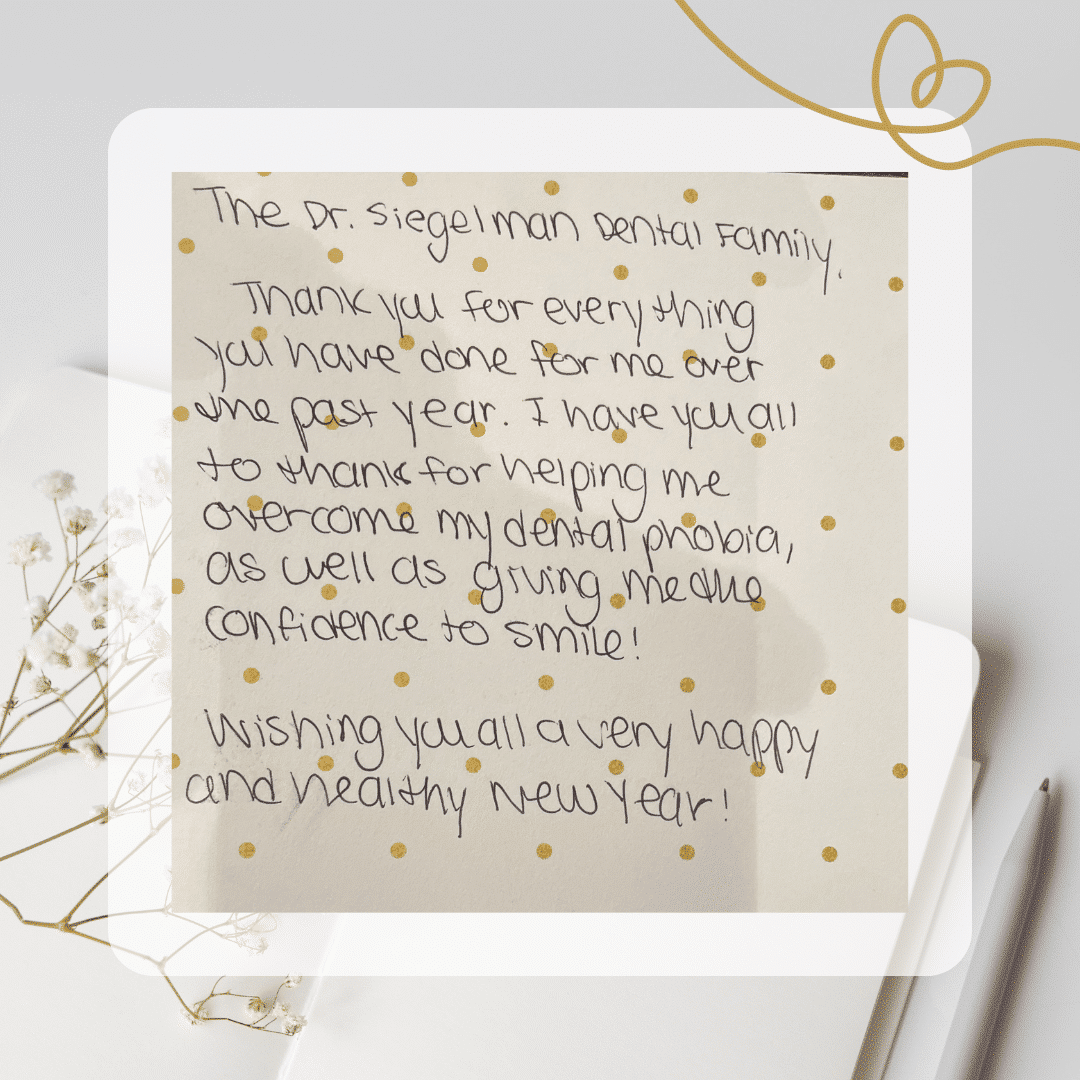 The Dr. Siegelman Dental Family,
Thank you for everything
you have done for me over
the past year. I have you all
to thank for helping me
overcome my dental phobia,
as well as giving me the
confidence to smile!
Wishing you all a very happy
and healthy New Year!